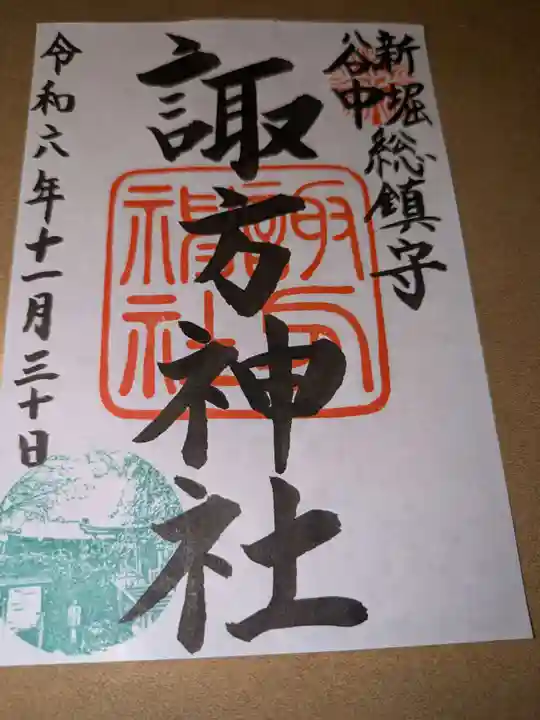 新堀
谷中
総鎮守
諏方神社
諏方
神社
令和六年十一月三十日